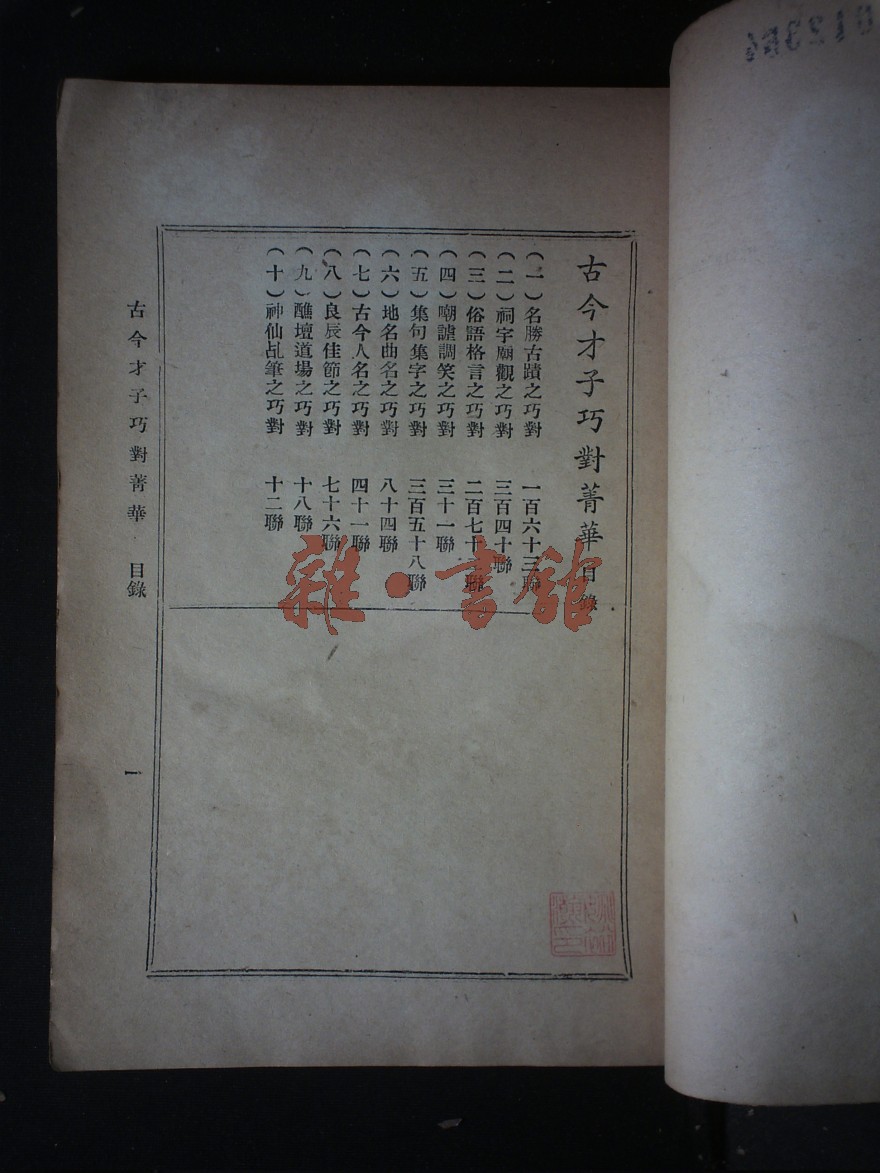 古今才子巧對菁華目錄
(一)名勝古蹟之巧對 一百六十三聯
(二)祠宇廟觀之巧對 三百四十聯
(三)俗語格言之巧對 二百七十聯
(四)嘲謔調笑之巧對 三十一聯
(五)集句集字之巧對 三百五十八聯
(六)地名曲名之巧對 八十四聯
(七)古今人名之巧對 四十一聯
(八)良辰佳節之巧對 七十六聯
(九)醮壇道場之巧對 十八聯
(十)神仙乩筆之巧對 十二聯
古今才子巧對菁華 目錄
一
雜·書館